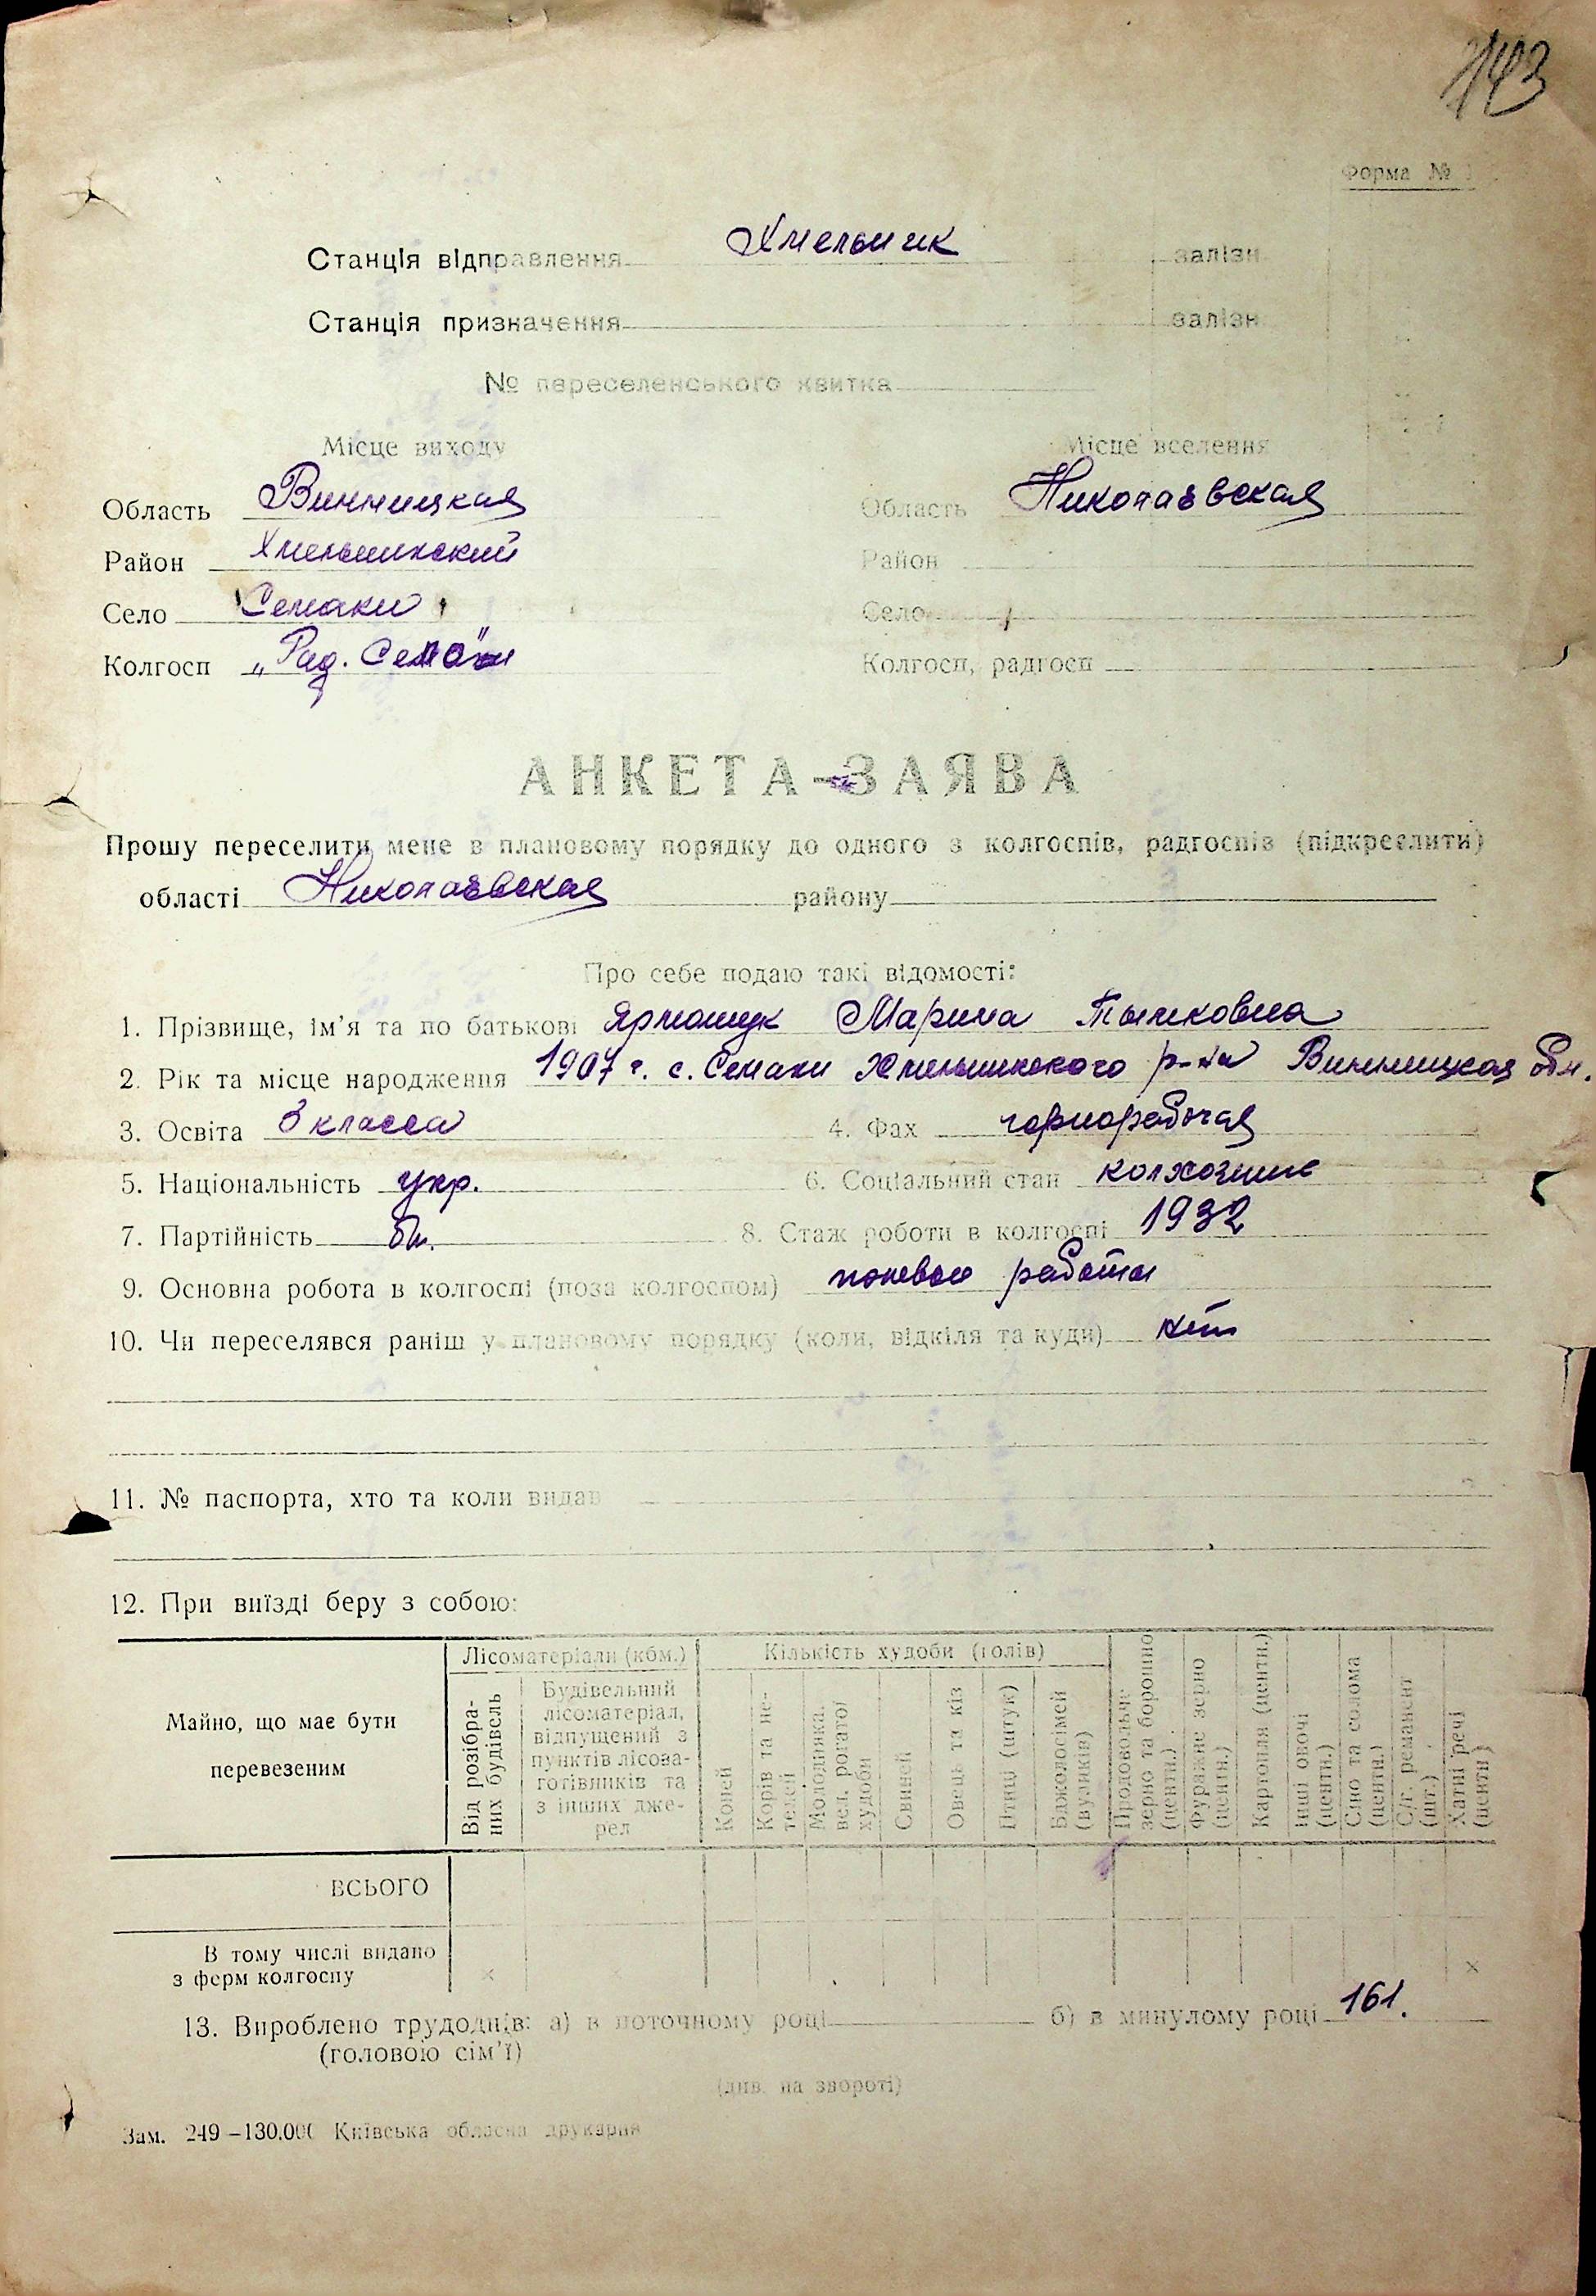 143
Форма №
Станція відправлення Хмельник залізн.
Станція призначення залізн.
№ переселенського квитка
Місце виходу Місце вселення
Область Винницкая Область Николаевская
Район Хмельникский Район
Село Семаки Село
Колгосп „Рад. Село" Колгосп, радгосп
АНКЕТА-ЗАЯВА
Прошу переселити мене в плановому порядку до одного з колгоспів, радгоспів (підкреслити)
області Николаевская району
Про себе подаю такі відомості:
1. Прізвище, ім'я та по батькові Ярмощук Марина Тымковна
2. Рік та місце народження 1907 г. с. Семаки Хмельникского р-на Винницкая обл.
3. Освіта 3 класса 4. Фах чернорабочая
5. Національність укр. 6. Соціальний стан
7. Партійність бп. 8. Стаж роботи в колгоспі 1932
9. Основна робота в колгоспі (поза колгоспом) полевые работы
10. Чи переселявся раніш у плановому порядку (коли, відкіля та куди) нет
11. № паспорта, хто та коли видав
12. При виїзді беру з собою:
Майно, що має бути перевезеним
Лісоматеріали (кбм.)
Від розібраних будівель
Будівельний
лісоматеріал,
відпущений з
пунктів лісоза-
готівників та
з інших дже-
рел
Кількість худоби (голів)
Коней
Корів та не-
телей
Молодняка.
вел. рогатої
худоби
Свиней
Овець та кіз
Птиці (штук)
Бджолосімей
(вуликів)
Продовольче
зерно та борошно
(центн.)
Фуражне зерно
(центн.)
Картопля (центн.)
Інші овочі
(центн.)
Сіно та солома
(центн.)
С/г. реманент
(шт.)
Хатні речі
(центн.)
ВСЬОГО
В тому числі видано
з ферм колгоспу × ×
13. Вироблено трудоднів: а) в поточному році б) в минулому році 161.
(головою сім'ї)
(див. на звороті)
Зам. 249—130.000 Київська обласна друкарня